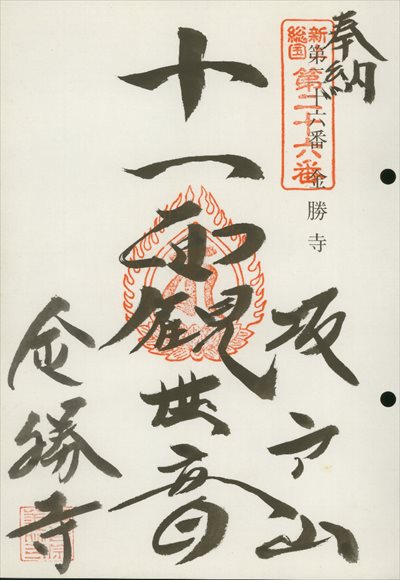 奉納
新総国
第二十六番
第二十六番 金勝寺
坂戸山
十一面観世音
金勝寺